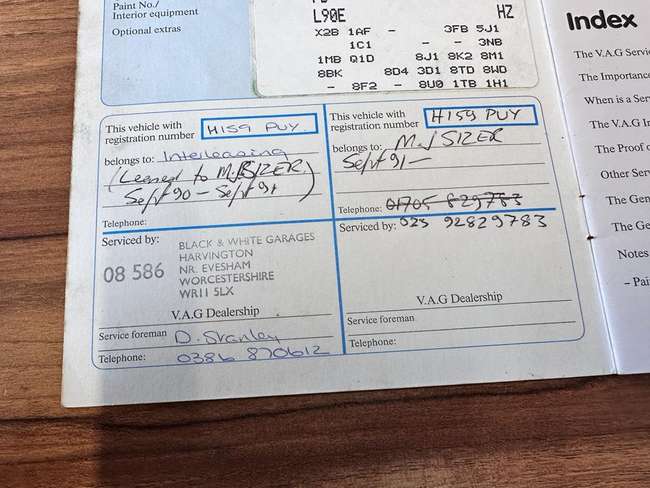 Paint No./
Interior equipment
L90E HZ
Optional extras
X2B 1AF - 3FB 5J1
1C1 - - 3NB
1MB Q1D 8J1 8K2 8M1
8BK 8D4 3D1 8TD 8WD
- 8F2 - 8U0 1TB 1H1
This vehicle with
registration number H159 PUY
belongs to: Interleasing
(Leased to M.J SIZER
Sept 90 - Sept 91)
Telephone:
Serviced by:
08 586
BLACK & WHITE GARAGES
HARVINGTON
NR. EVESHAM
WORCESTERSHIRE
WR11 5LX
V.A.G Dealership
Service foreman D. Stanley
Telephone: 0386 870612
This vehicle with
registration number H159 PUY
belongs to: M.J SIZER
Sept 91 -
Telephone: 01705 829783
Serviced by: 023 92829783
V.A.G Dealership
Service foreman
Telephone:
Index
The V.A.G Servi
The Importance
When is a Ser
The V.A.G In
The Proof o
Other Serv
The Gen
The Ge
Notes
- Pai